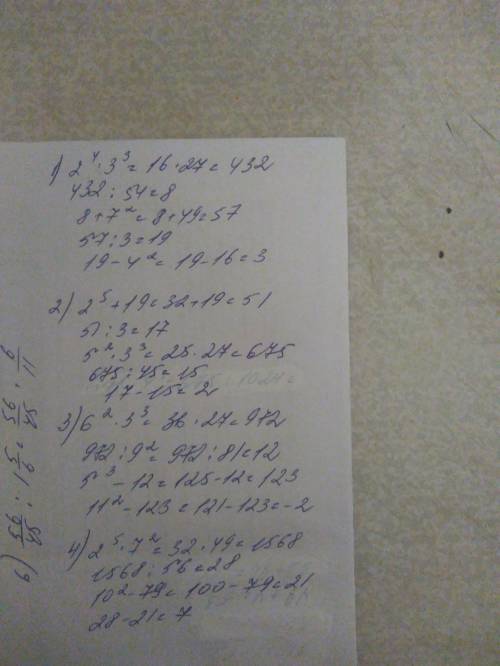 1) 2⁴·3³=16·27=432
432:54=8
8+7²=8+49=57
57:3=19
19-4²=19-16=3
2) 2⁵+19=32+19=51
51:3=17
5²·3³=25·27=675
675:45=15
17-15=2
3) 6²·3³=36·27=972
972:9²=972:81=12
5³-12=125-12=123
11²-123=121-123=-2
4) 2⁵·7²=32·49=1568
1568:56=28
10²-79=100-79=21
28-21=7
6) 56/45 : 1 5/6 = 56/45 · 6/11